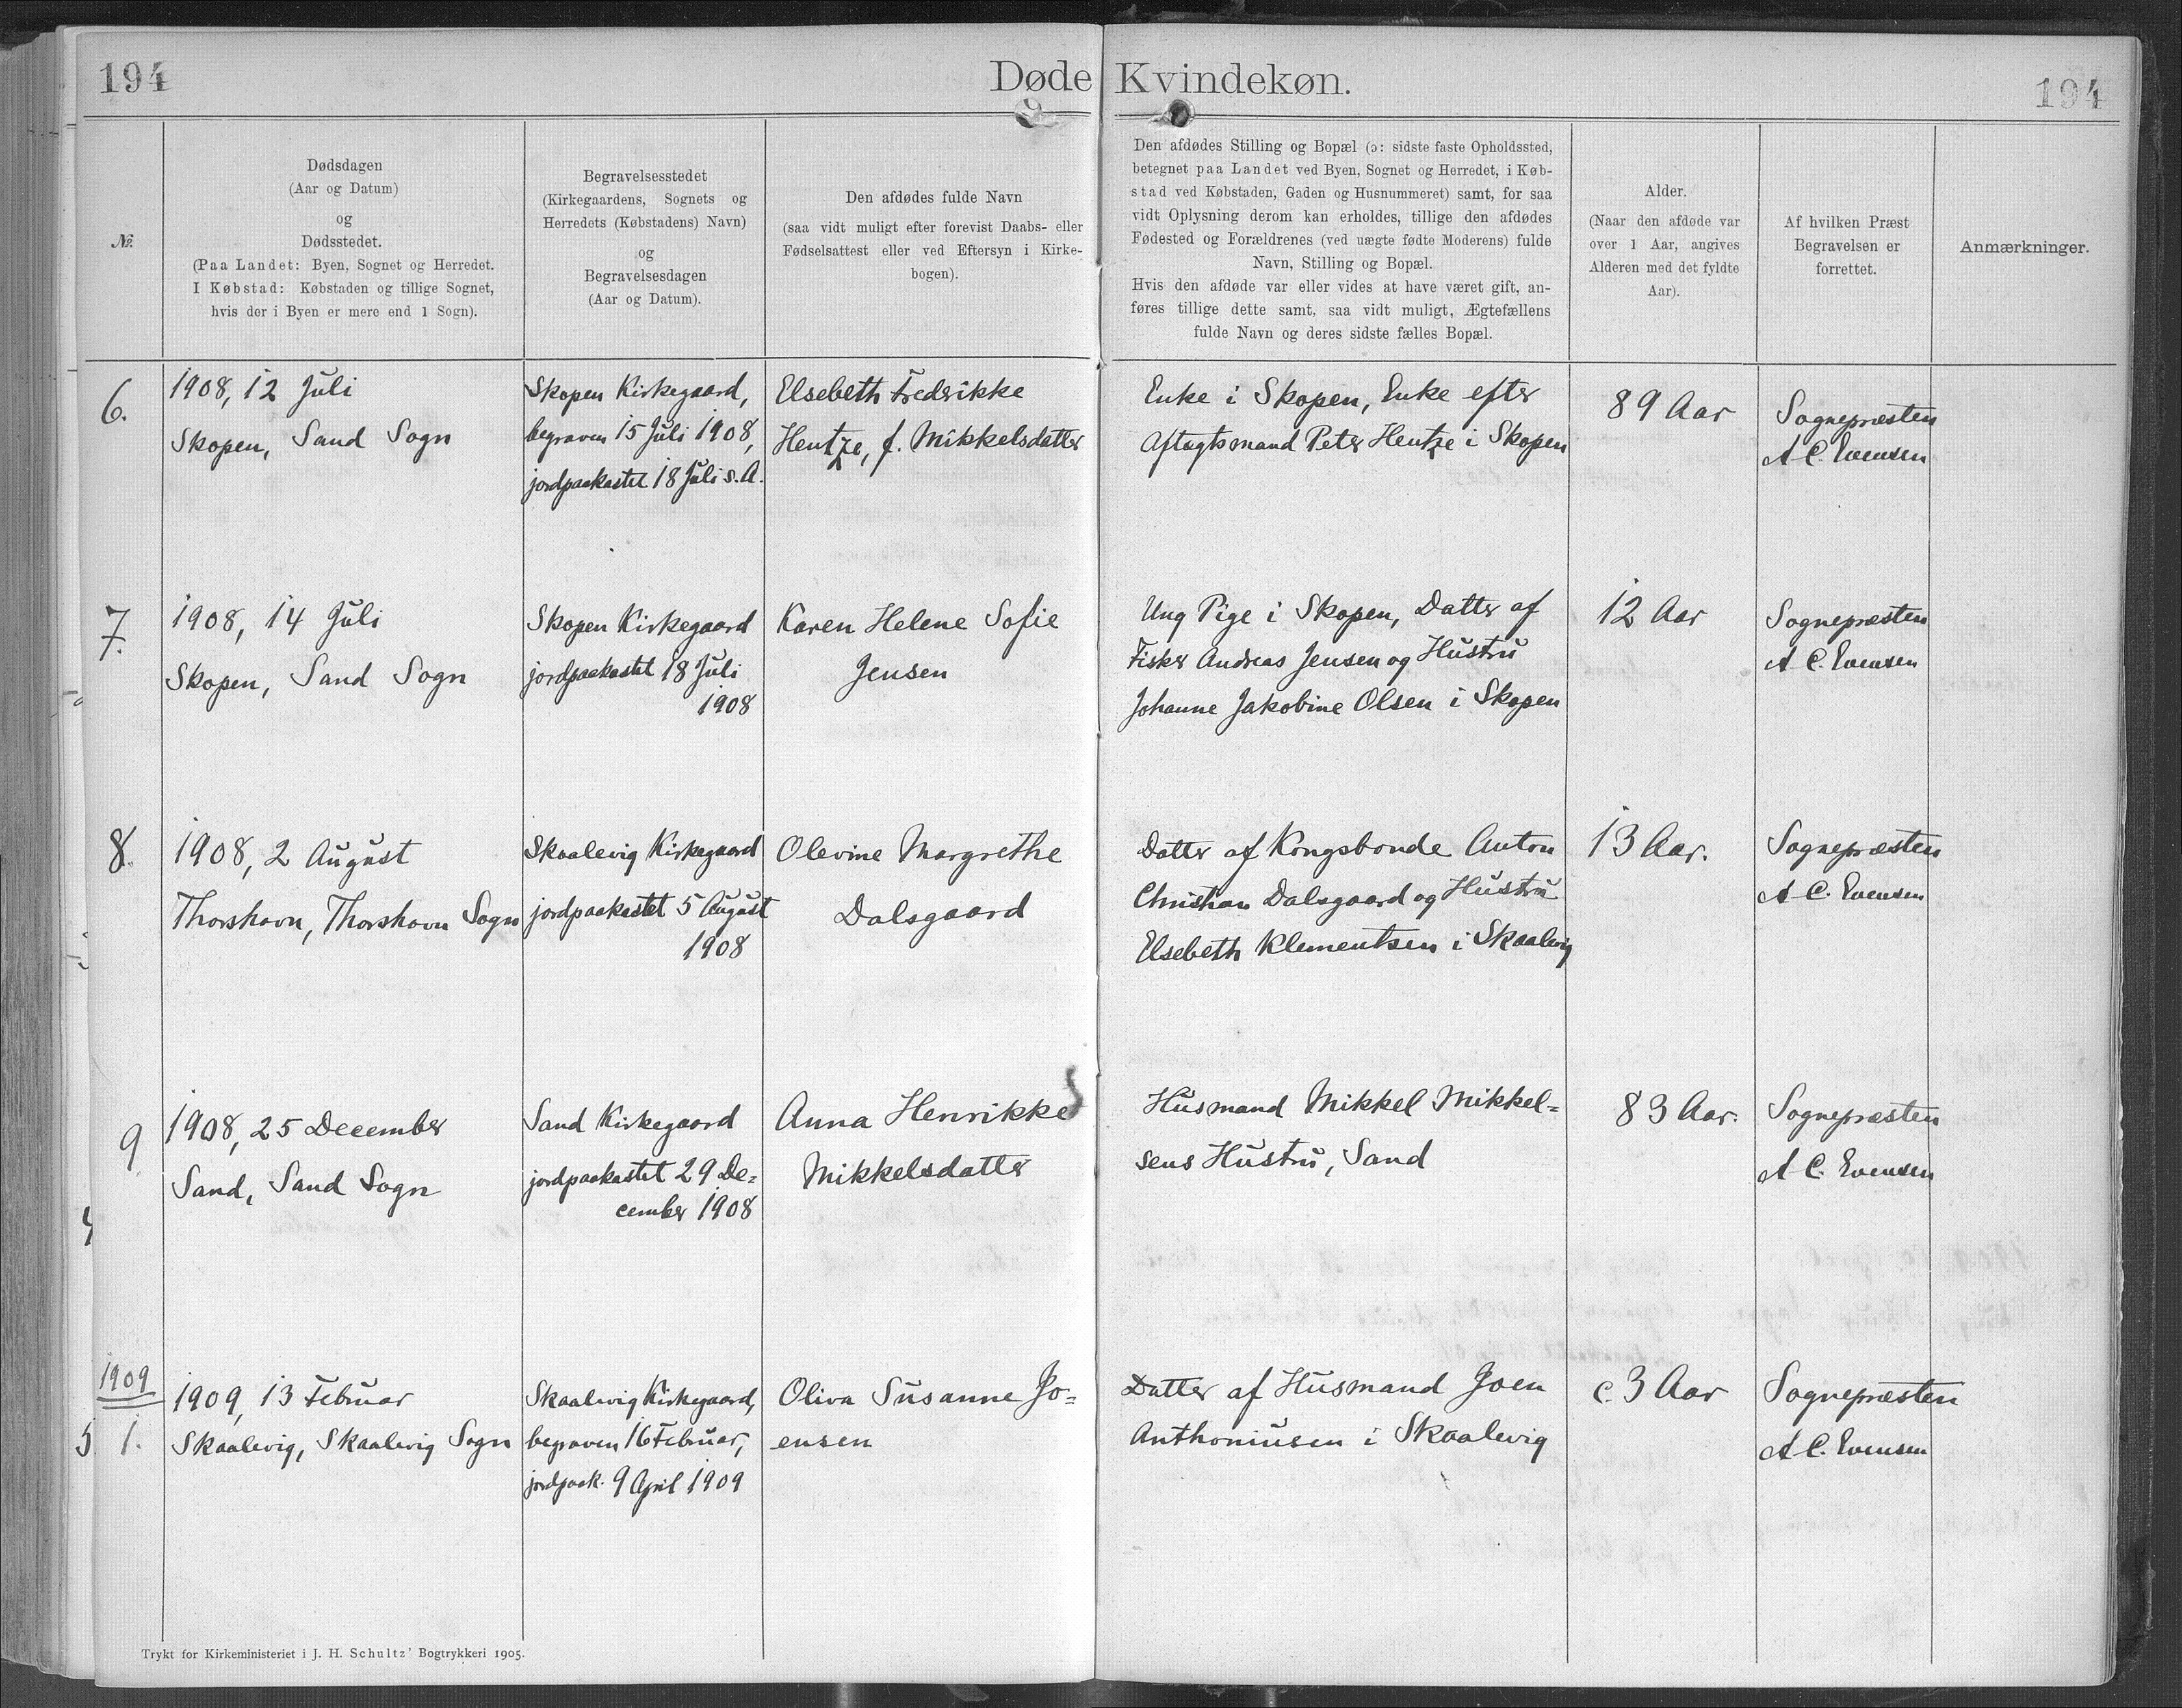 194
Døde Kvindekøn.
194
№.
Dødsdagen
(Aar og Datum)
og
Dødsstedet.
(Paa Landet: Byen, Sognet og Herredet.
I Købstad: Købstaden og tillige Sognet,
hvis der i Byen er mere end 1 Sogn).
Begravelsesstedet
(Kirkegaardens, Sognets og
Herredets (Købstadens) Navn)
og
Begravelsesdagen
(Aar og Datum).
Den afdødes fulde Navn
(saa vidt muligt efter forevist Daabs- eller
Fødselsattest eller ved Eftersyn i Kirke-
bogen).
Den afdødes Stilling og Bopæl (ɔ: sidste faste Opholdssted,
betegnet paa Landet ved Byen, Sognet og Herredet, i Køb-
stad ved Købstaden, Gaden og Husnummeret) samt, for saa
vidt Oplysning derom kan erholdes, tillige den afdødes
Fødested og Forældrenes (ved uægte fødte Moderens) fulde
Navn, Stilling og Bopæl.
Hvis den afdøde var eller vides at have været gift, an-
føres tillige dette samt, saa vidt muligt, Ægtefællens
fulde Navn og deres sidste fælles Bopæl.
Alder.
(Naar den afdøde var
over 1 Aar, angives
Alderen med det fyldte
Aar).
Af hvilken Præst
Begravelsen er
forrettet.
Anmærkninger.
6.
1908, 12 Juli
Skopen, Sand Sogn
Skopen Kirkegaard,
begraven 15 Juli 1908,
jordpaakastet 18 Juli s.A.
Elsebeth Fredrikke
Hentze, f. Mikkelsdatter
Enke i Skopen, Enke efter
Aftagtsmand Peter Hentze i Skopen
89 Aar
Sognepræsten
A. C. Evensen
7.
1908, 14 Juli
Skopen, Sand Sogn
Skopen Kirkegaard
jordpaakastet 18 Juli
1908
Karen Helene Sofie
Jensen
Ung Pige i Skopen, Datter af
Fisker Andreas Jensen og Hustru
Johanne Jakobine Olsen i Skopen
12 Aar
Sognepræsten
A. C. Evensen
8.
1908, 2 August
Thorshavn, Thorshavn Sogn
Skaalevig Kirkegaard
jordpaakastet 5 August
1908
Olevine Margrethe
Dalsgaard
Datter af Kongsbonde Anton
Christian Dalsgaard og Hustru
Elsebeth Klementsen i Skaalevig
13 Aar.
Sognepræsten
A. C. Evensen
9
1908, 25 December
Sand, Sand Sogn
Sand Kirkegaard
jordpaakastet 29 De=
cember 1908
Anna Henrikke
Mikkelsdatter
Husmand Mikkel Mikkel=
sens Hustru, Sand
83 Aar.
Sognepræsten
A. C. Evensen
1909
1.
1909, 13 Februar
Skaalevig, Skaalevig Sogn
Skaalevig Kirkegaard,
begraven 16 Februar,
jordpaak. 9 April 1909
Oliva Susanne Jo=
ensen
Datter af Husmand Joen
Anthoniusen i Skaalevig
c. 3 Aar
Sognepræsten
A. C. Evensen
Trykt for Kirkeministeriet i J. H. Schultz' Bogtrykkeri 1905.